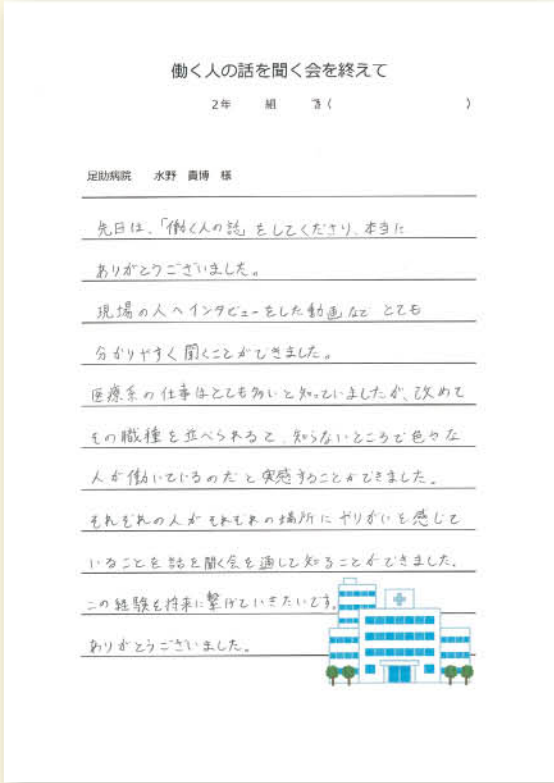 働く人の話を聞く会を終えて
2年 組 (
)
足助病院 水野 貴博 様
先日は、「働く人の話」をしてくださり、本当に
ありがとうございました。
現場の人へインタビューをした動画など とても
分かりやすく聞くことができました。
医療系の仕事はとても多いと知っていましたが、改めて
その職種を並べられると、知らないところで色々な
人が働いているのだと実感することができました。
それぞれの人がそれぞれの場所にやりがいを感じて
いることを話を聞く会を通して知ることができました。
この経験を将来に繋げていきたいです。
ありがとうございました。